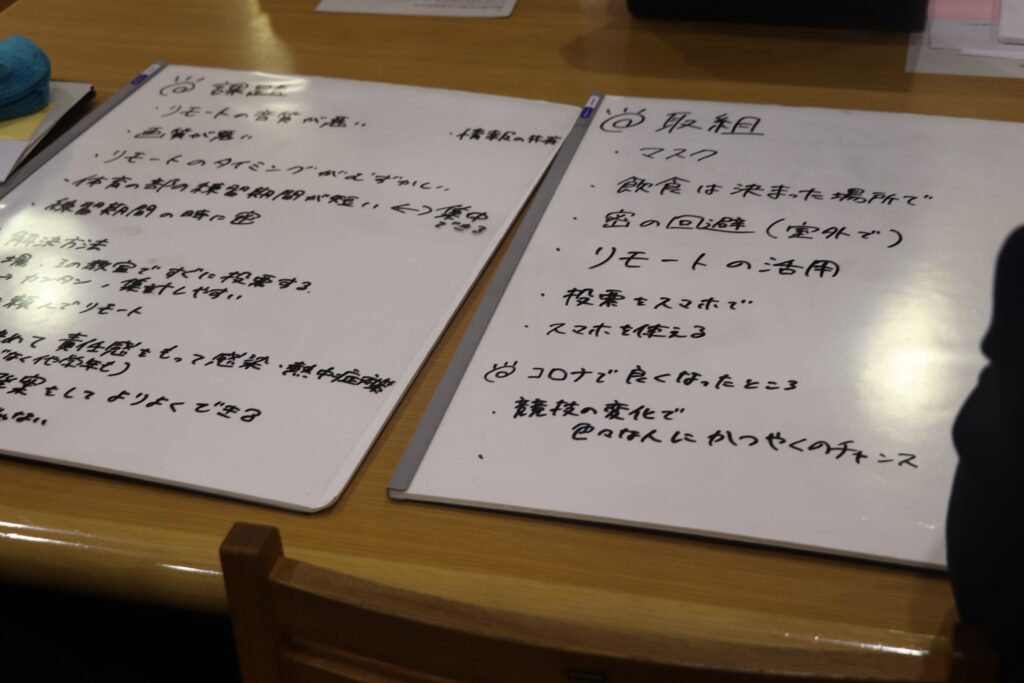 課題
・リモートの音質が悪い
・画質が悪い
・情報の共有
・リモートのタイミングがむずかしい
・体育の部の練習期間が短い ↔ 集中できる
・練習期間の時に密
解決方法
教室ですぐに投票する
→カンタン、集計しやすい
頼んでリモート
決めて 責任感をもって感染・熱中症
なく他学年も)
をしてよりよくできる
ない
取組
・マスク
・飲食は決まった場所で
・密の回避(室外で)
・リモートの活用
・投票をスマホで
・スマホを使える
コロナで良くなったところ
・競技の変化で
色々な人にかつやくのチャンス
・